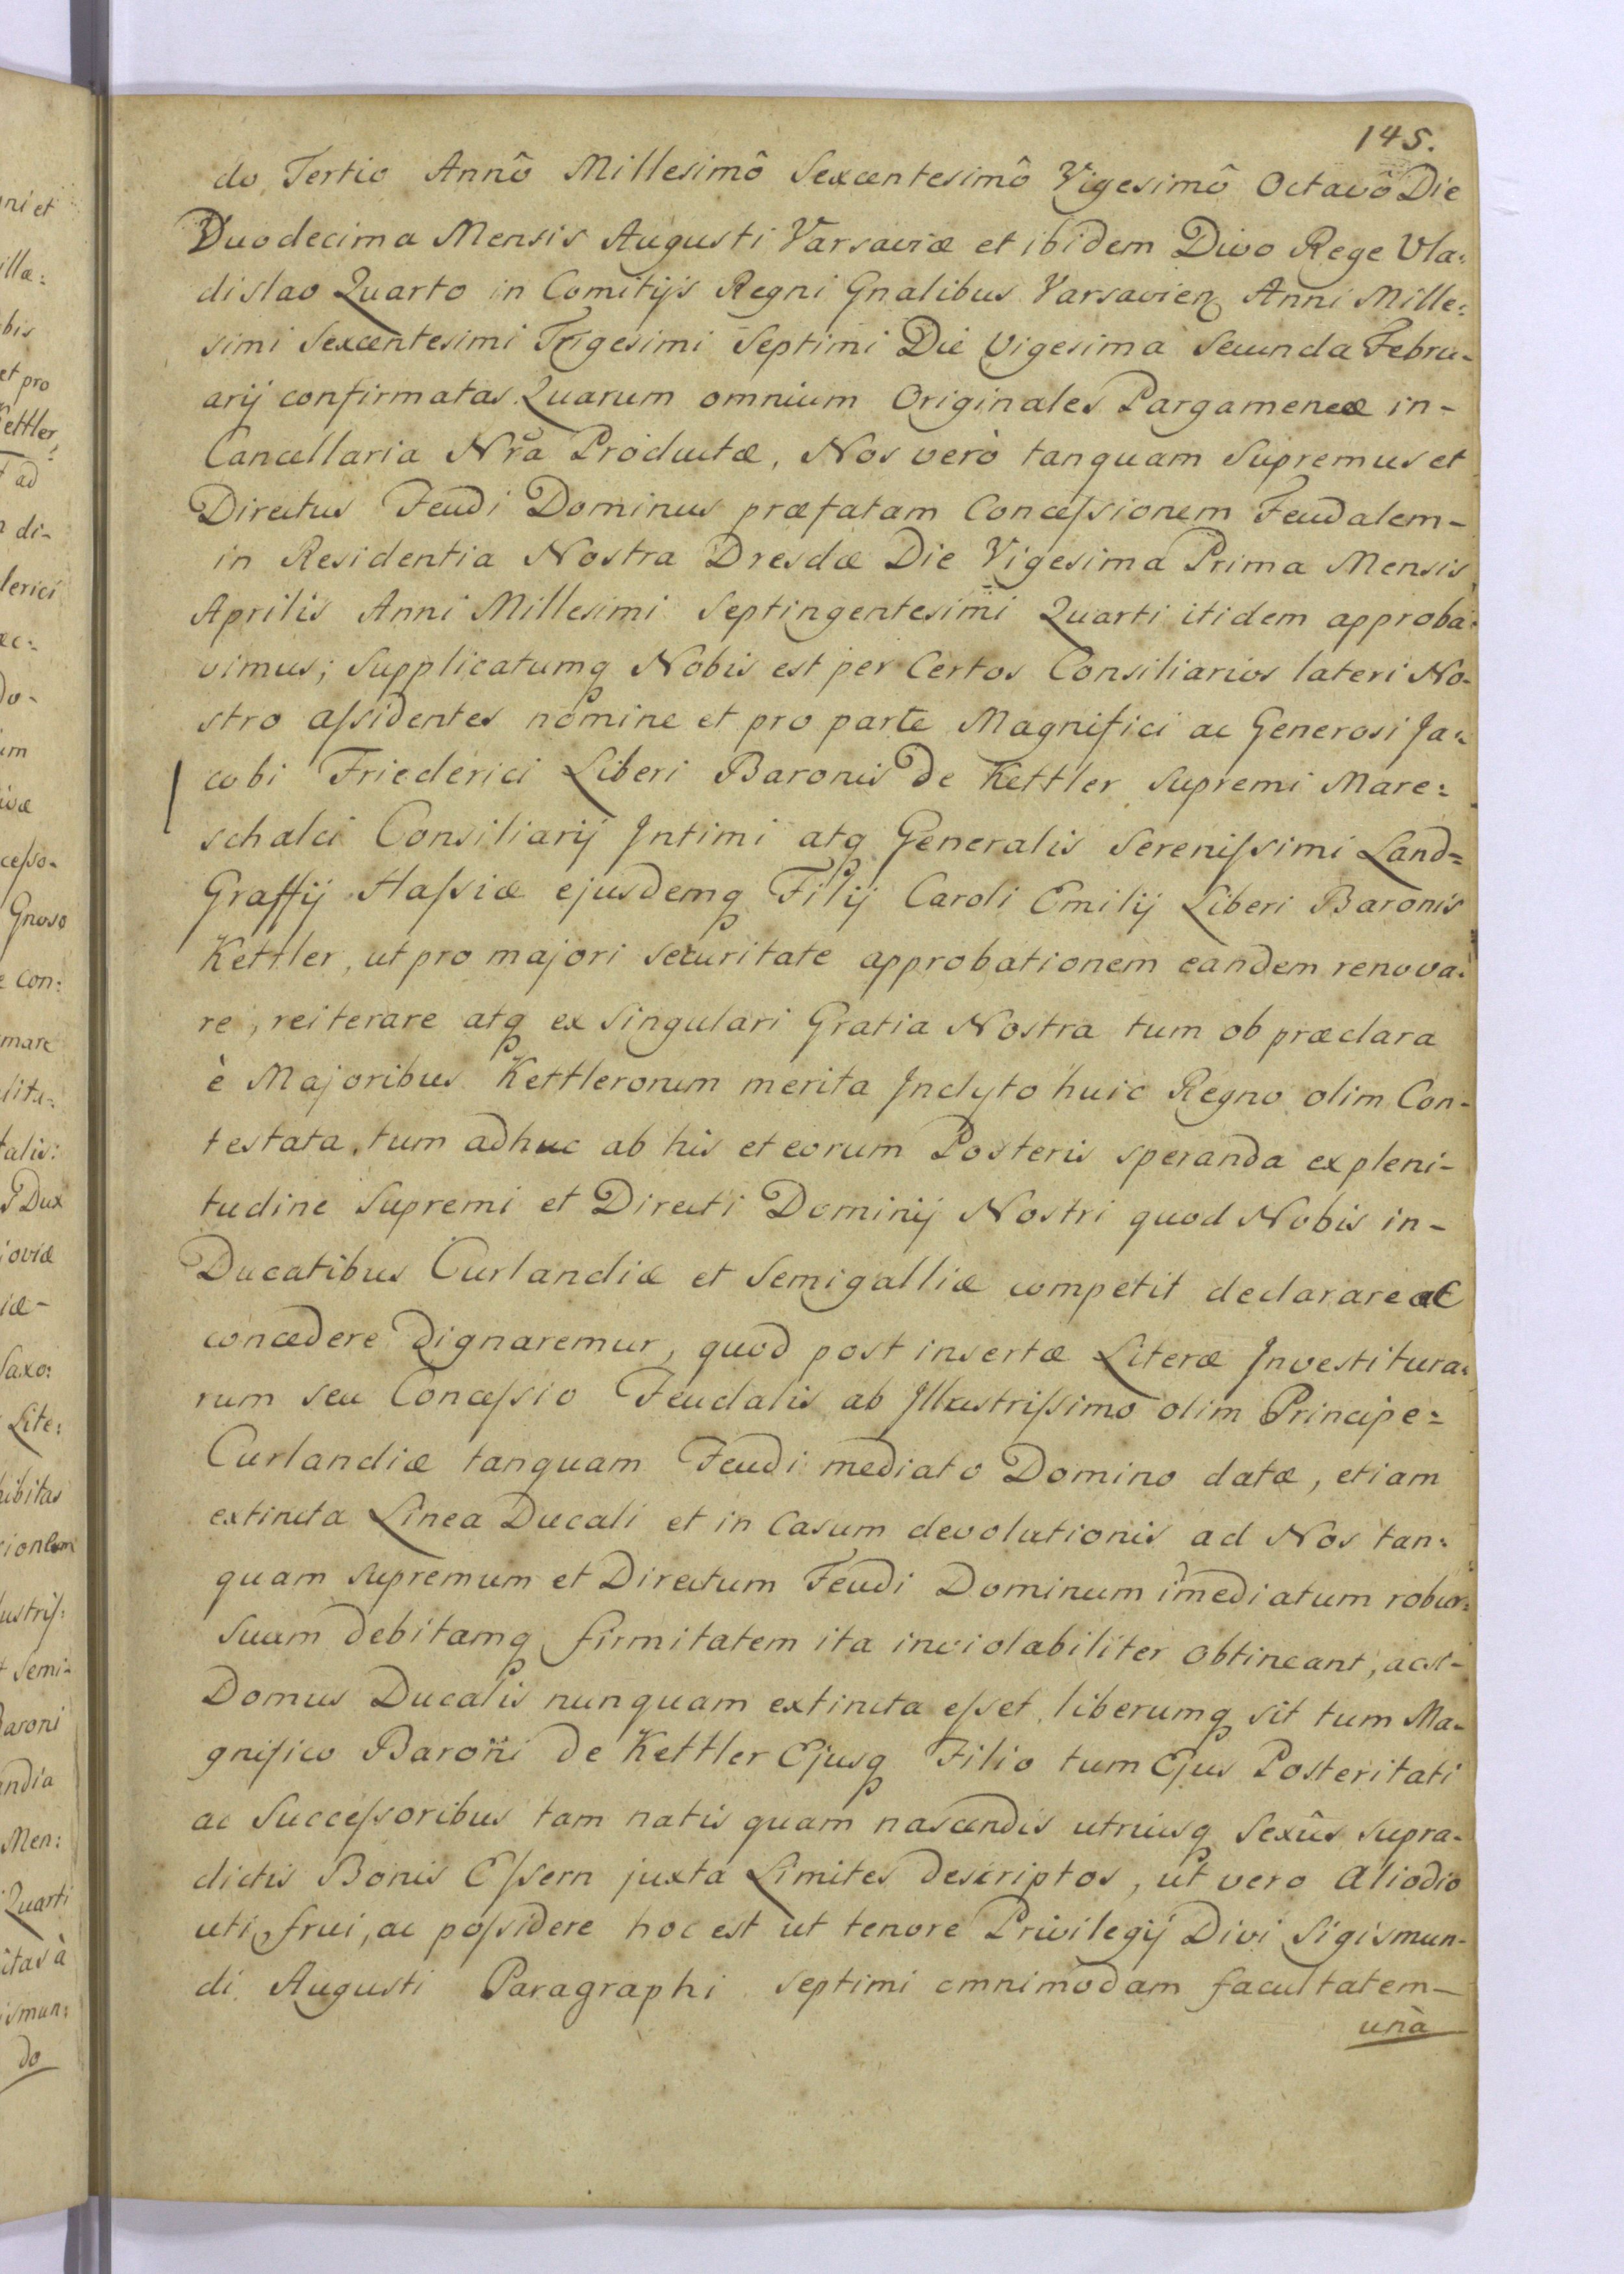 145.
do Tertio Annô Millesimô Sexcentesimô Vigesimô Octavô Die
Duodecima Mensis Augusti Varsaviæ et ibidem Divo Rege Vla:
dislao Quarto in Comitijs Regni Gnalibus Varsavienȝ Anni Mille:
simi Sexcentesimi Trigesimi Septimi Die Vigesima Secunda Febru-
arij confirmatas Quarum omnium Originales Pargameneæ in-
Cancellaria Nrã Productæ, Nos verò tanquam Supremus et
Directus Feudi Dominus præfatam Conceſsionem Feudalem-
in Residentia Nostra Dresdæ Die Vigesima Prima Mensis
Aprilis Anni Millesimi Septingentesimi Quarti itidem approba:
vimus; Supplicatumq Nobis est per Certos Consiliarios lateri No-
stro aſsidentes nomine et pro parte Magnifici ac Generosi Ja:
cobi Friederici Liberi Baronis de Kettler Supremi Mare:
schalci Consiliarij Intimi atq Generalis Sereniſsimi Land=
Graffij Haſsiæ ejusdemq Filij Caroli Emilij Liberi Baronis
Kettler, ut pro majori securitate approbationem eandem renova:
re, reiterare atq ex Singulari Gratia Nostra tum ob præclara
è Majoribus Kettlerorum merita Inclyto huic Regno olim Con-
testata, tum adhuc ab his et eorum Posteris speranda ex pleni-
tudine Supremi et Directi Dominij Nostri quod Nobis in-
Ducatibus Curlandiæ et Semigalliæ competit declarare ac
concedere dignaremur, quod post insertæ Literæ Investitura:
rum seu Conceſsio Feudalis ab Illustriſsimo olim Principe=
Curlandiæ tanquam Feudi mediato Domino datæ, etiam
extincta Linea Ducali et in Casum devolutionis ad Nos tan:
quam Supremum et Directum Feudi Dominum im̃ediatum robur:
Suum debitamq firmitatem ita inviolabiliter obtineant, acsi-
Domus Ducalis nunquam extincta eſset, liberumq sit tum Ma-
gnifico Baroni de Kettler Ejusq Filio tum Ejus Posteritati
ac Succeſsoribus tam natis quam nascendis utriusq Sexûs supra-
dictis Bonis Eſsern juxta Limites descriptos, ut vero Aliodio
uti, frui, ac poſsidere hoc est ut tenore Privilegij Divi Sigismun-
di Augusti Paragraphi Septimi omnimodam facultatem-
unà
ni et
illæ:
bis
et pro
Kettler
ad
di-
lerici
do-
ceſso-
Gnoso
con:
mare
talis:
Dux
oviæ
Saxo:
Lite:
hibitas
ustriſ:
Semi-
Baroni
andia
Men:
Quarti
itas à
ismun:
do